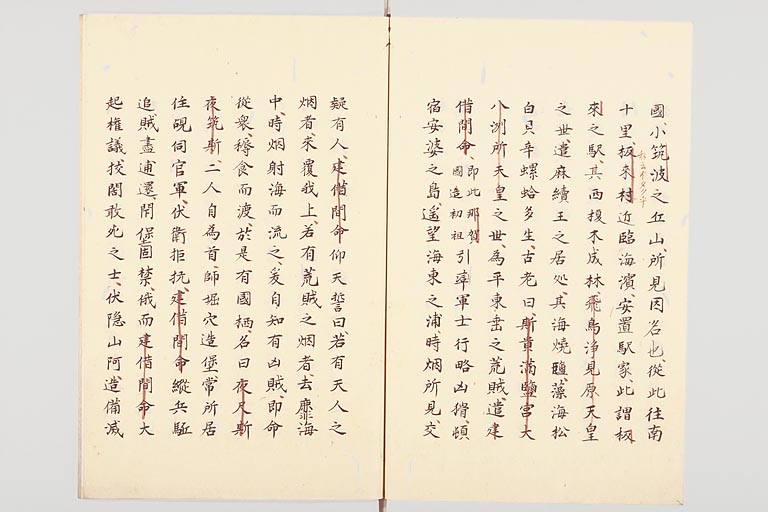 國、小筑波之丘山、所見因名也、從此往南
十里、板來村、近臨海濱、安置駅家、此謂板
來之駅、其西榎木成林、飛鳥浄見原天皇
之世、遣麻續王之居処、其海燒鹽、藻海松
白貝辛螺蛤多生、古老曰、斯貴滿鹽宮大
八洲所天皇之世、為平東垂之荒賊、遣建
借間命、即此那賀國造初祖引率軍士行略凶猾、頓
宿安婆之島、遙望海東之浦、時烟所見、交
疑有人、建借間命仰天誓曰若有天人之
烟者、来覆我上、若有荒賊之烟者、去靡海
中、時烟射海而流之、爰自知有凶賊、即命
從衆、褥食而渡、於是有國栖名曰夜尺斯
夜筑斯、二人自為首、師堀穴造堡、常所居
住、覘伺官軍、伏衛拒抗、建借間命縱兵駈
追、賊盡逋還、閇堡固禁、俄而建借間命大
起権議、挍閲敢死之士、伏隠山阿、造備滅